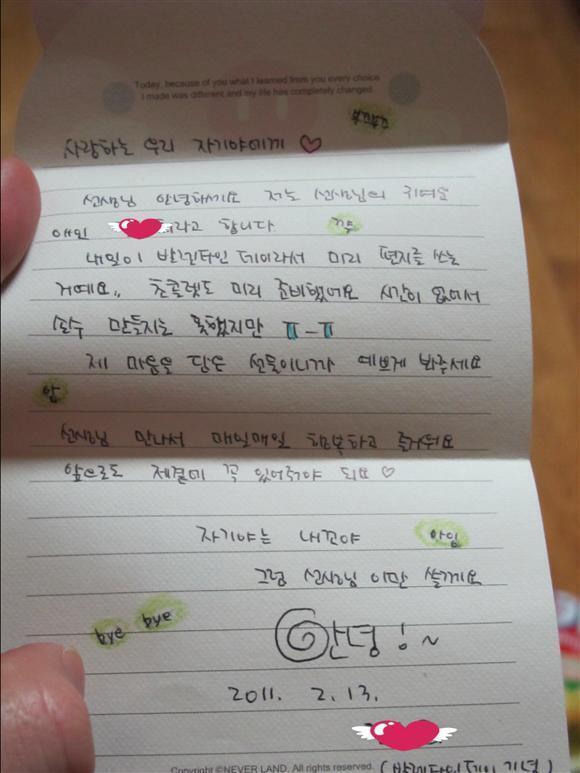 Today, because of you what I learned from you every choice
I made was different and my life has completely changed.
부끄부끄
사랑하는 우리 자기야에게 ♡
선생님 안녕하세요 저는 선생님의 귀여운
애인 라고 합니다 꺅
내일이 발렌타인데이라서 미리 편지를 쓰는
거예요,, 초콜렛도 미리 준비했어요 시간이 없어서
손수 만들지는 못했지만 ㅠ-ㅠ
제 마음을 담은 선물이니까 예쁘게 봐주세요
앙
선생님 만나서 매일매일 행복하고 즐거워요
앞으로도 제곁에 꼭 있어줘야 되요 ♡
자기야는 내꼬야 아잉
그럼 선생님 이만 쓸께요
bye bye
안녕!~
2011. 2. 13.
Copyright ©NEVER LAND. All rights reserved. (발렌타인데이 기념)